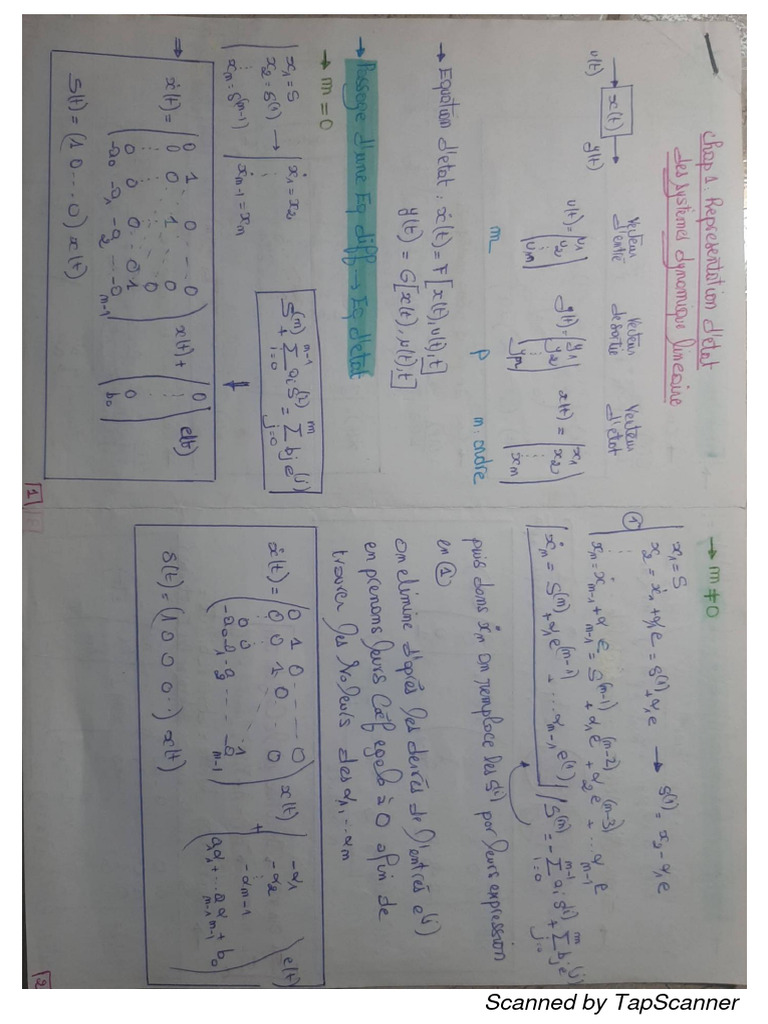 chap 1: Representation d'état
des systemes dynamique lineaire
u(t) → x(t) → y(t)
Vecteur d'entré
Vecteur de sortie
Vecteur d'état
u(t) = (u1 u2 ⋮ um)
y(t) = (y1 y2 ⋮ yp)
x(t) = (x1 x2 ⋮ xn)
m
p
n: ordre
→ Equation d'état : ẋ(t) = F[x(t), u(t), t]
y(t) = G[x(t), u(t), t]
→ Passage d'une Eq diff → Eq d'état
→ m = 0
S^(n) + Σ_{i=0}^{n-1} ai S^(i) = Σ_{j=0}^{m} bj e^(j)
x1 = S
x2 = S^(1) → ẋ1 = x2
⋮
xn = S^(n-1)
ẋn-1 = xn
⇒ ẋ(t) = (0 1 0 ... 0
0 0 1 ... 0
⋮ 0
0 0 0 0 1
-a0 -a1 -a2 ... -a n-1) x(t) + (0 ⋮ 0 b0) e(t)
S(t) = (1 0 ... 0) x(t)
1
→ m ≠ 0
① x1 = S
x2 = ẋ1 + α1 e = S^(1) + α1 e → S^(1) = x2 - α1 e
⋮
xn = ẋn-1 + αn-1 e = S^(n-1) + α1 e^(n-2) + α2 e^(n-3) + ... αn-1 e
ẋn = S^(n) + α1 e^(n-1) + ... αn-1 e^(1) / S^(n) = - Σ_{i=0}^{n-1} ai S^(i) + Σ_{j=0}^{m} bj e^(j)
puis dans ẋn on remplace les S^(i) par leurs expression
en ①
On elimine d'après les derivés de l'entrés e^(j)
en prenons leurs Cœf egals à 0 afin de
trouver les Valeurs des α1, ... αn
ẋ(t) = (0 1 0 ... 0
0 0 1 0 ... 0
⋮ 0 0 1
-a0 -a1 -a2 ... -a n-1) x(t) + (-α1 -α2 ⋮ -αn-1 a1α1 + ... a n-1 α n-1 + b0) e(t)
S(t) = (1 0 0 0 ..) x(t)
2
Scanned by TapScanner